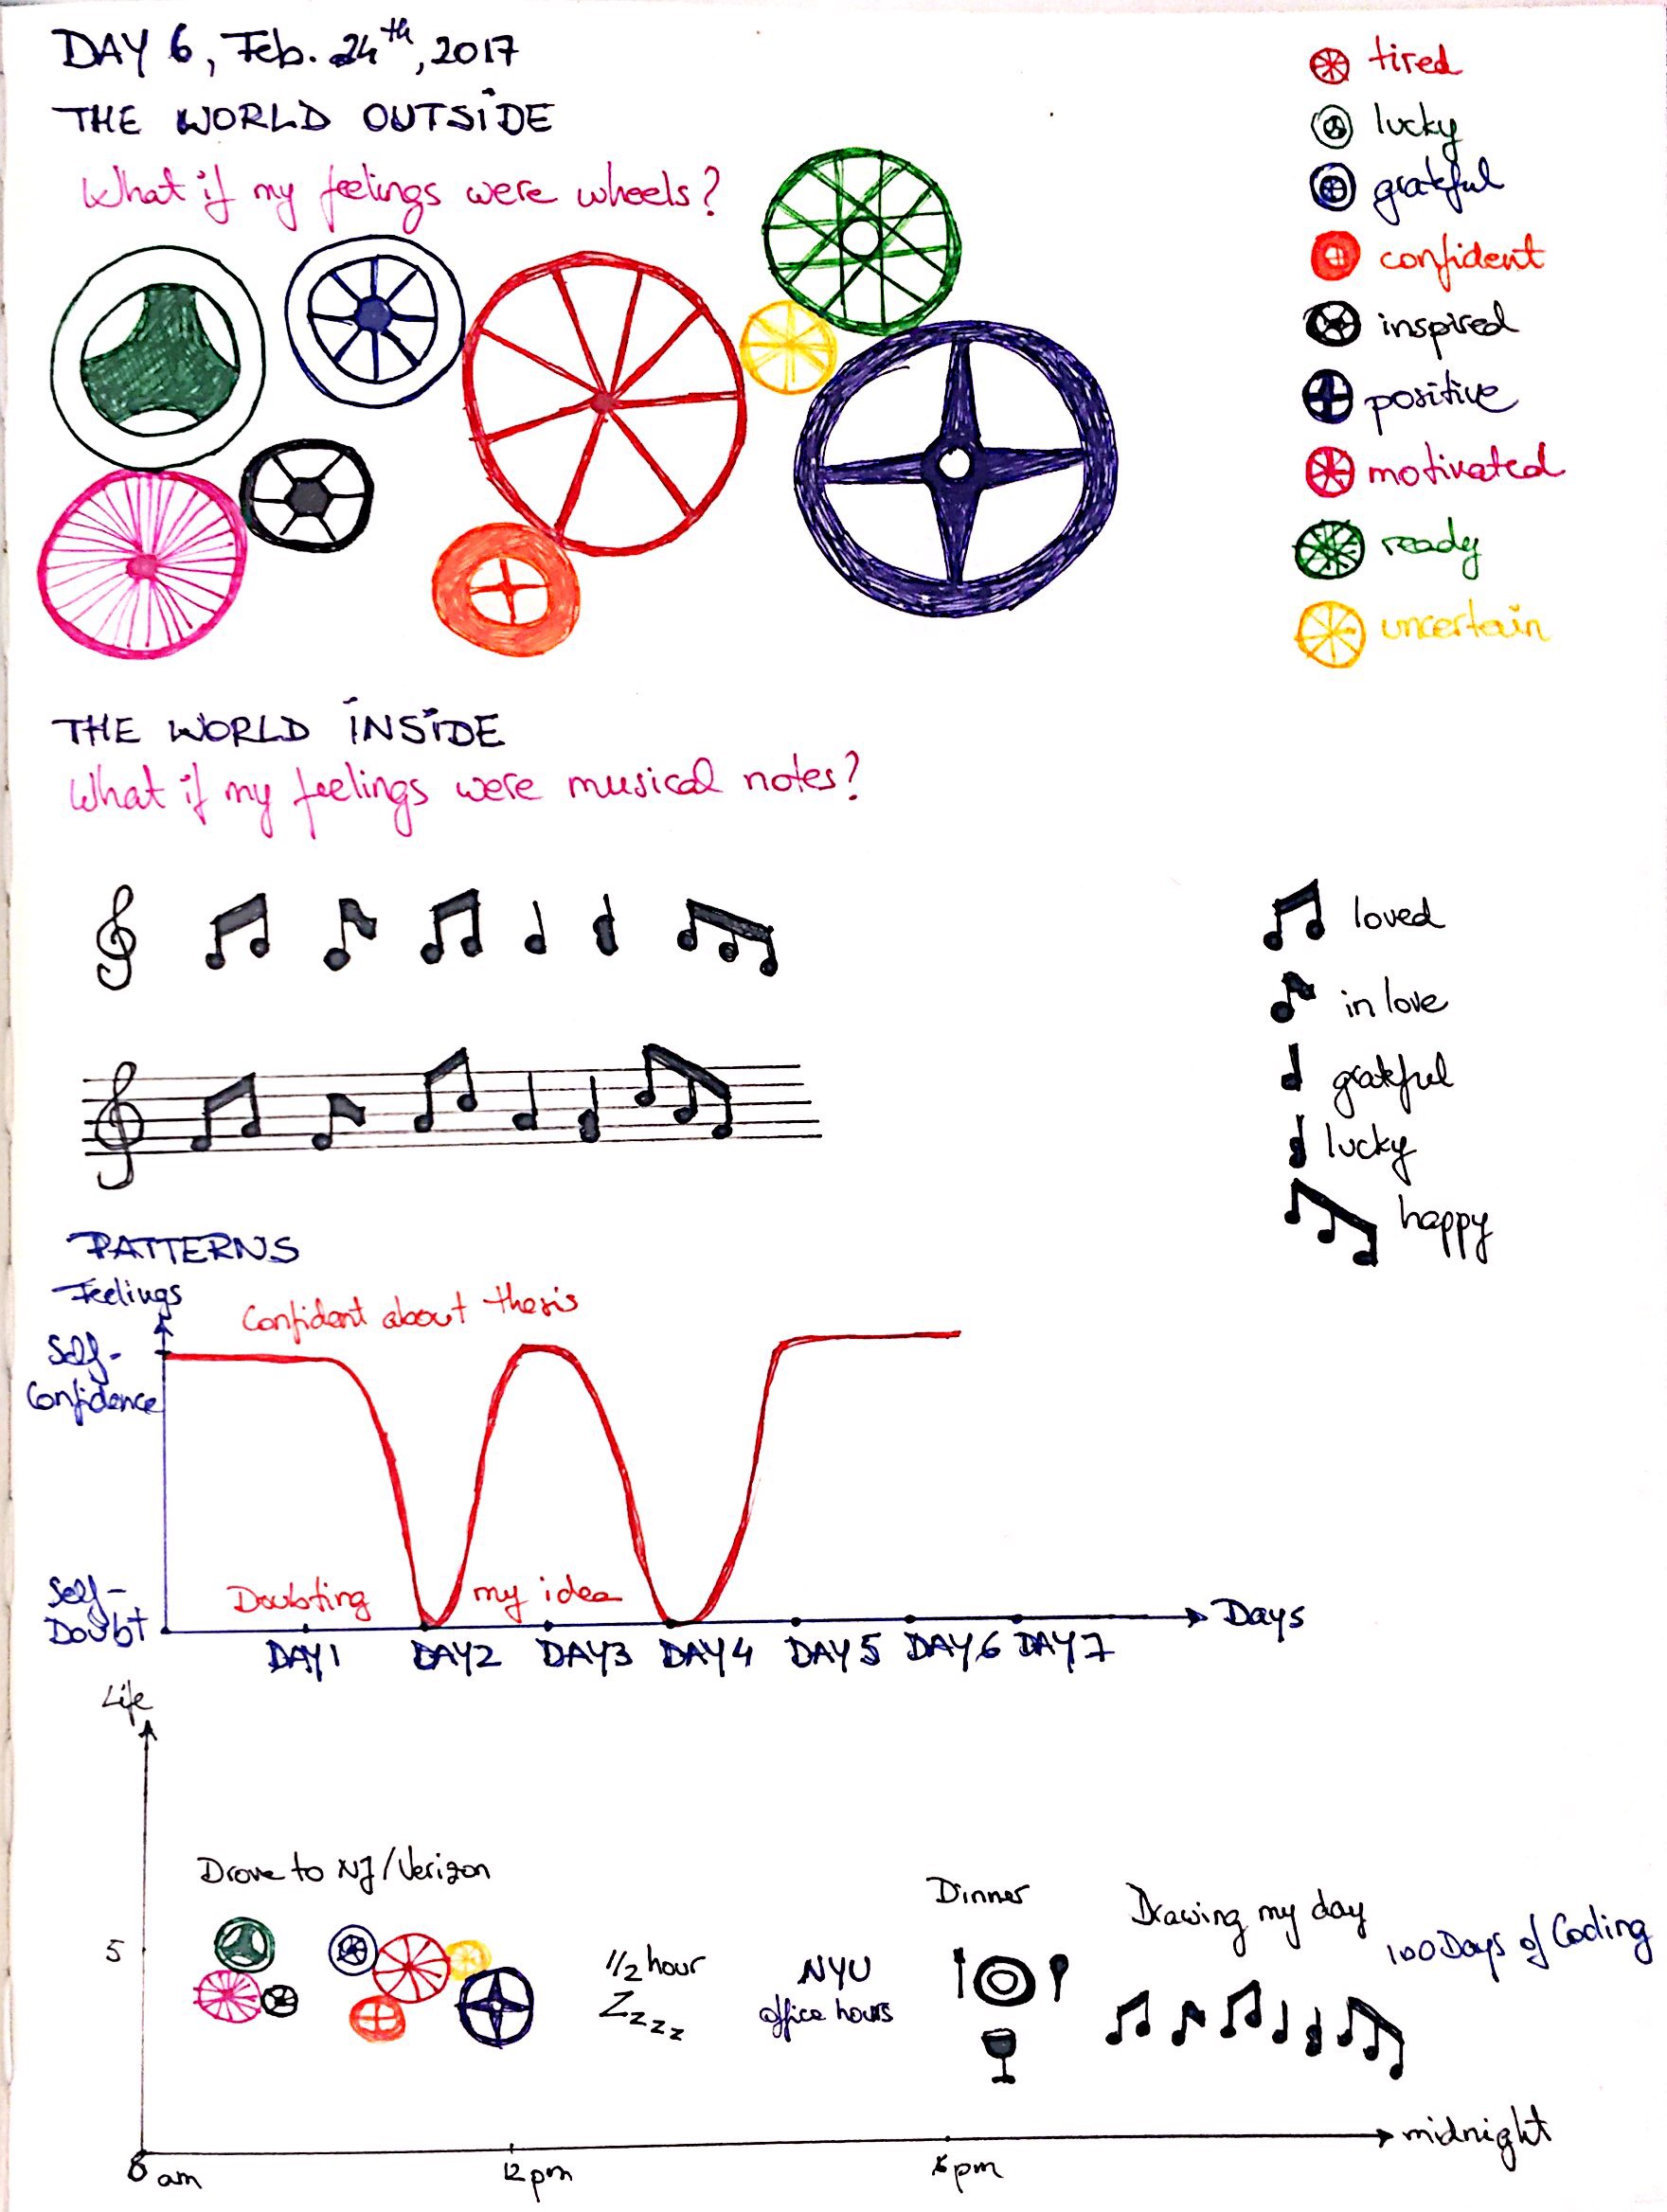 DAY 6, Feb. 24th, 2017
THE WORLD OUTSIDE
What if my feelings were wheels?
tired
lucky
grateful
confident
inspired
positive
motivated
ready
uncertain
THE WORLD INSIDE
What if my feelings were musical notes?
loved
in love
grateful
lucky
happy
PATTERNS
Feelings
Confident about thesis
Self-
Confidence
Self-
Doubt
Doubting my idea
Days
DAY1 DAY2 DAY3 DAY4 DAY5 DAY6 DAY7
Life
Drove to NJ/Verizon
Dinner
Drawing my day
100 Days of Coding
5
1/2 hour
Zzzz
NYU
office hours
midnight
6 am
12 pm
6 pm